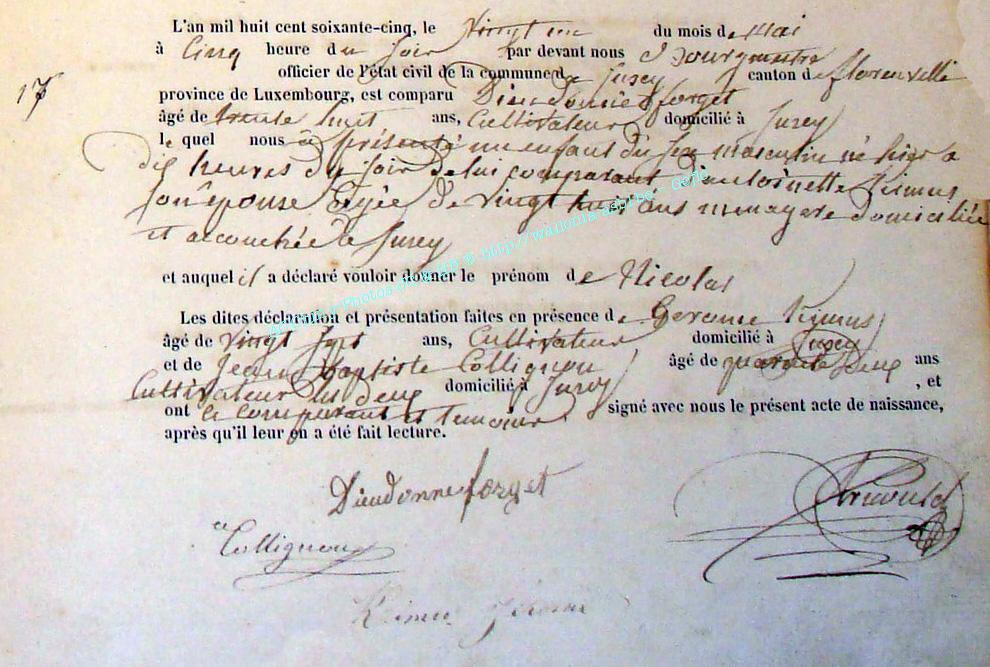 L'an mil huit cent soixante-cinq, le Vingt un du mois de Mai
à Cinq heure du soir par devant nous Bourgmestre
officier de l'état civil de la commune de Jusey canton de florenville
province de Luxembourg, est comparu Dieudonné forget
âgé de trente huit ans, Cultivateur domicilié à Jusey
le quel nous a présenté un enfant du sexe masculin né hier a
dix heures du soir de lui comparant d'antoinette
son épouse Agée de vingt huit ans menagere domiciliée
et accouchée a Jusey
et auquel il a déclaré vouloir donner le prénom de Nicolas
Les dites déclaration et présentation faites en présence de Gerome
âgé de vingt sept ans, Cultivateur domicilié à Jusey
et de Jean Baptiste Collignon âgé de quarante deux ans
Cultivateur les deux domicilié à Jusey , et
ont le comparant et temoins signé avec nous le présent acte de naissance,
après qu'il leur en a été fait lecture.
Dieudonne forget
Collignon
17